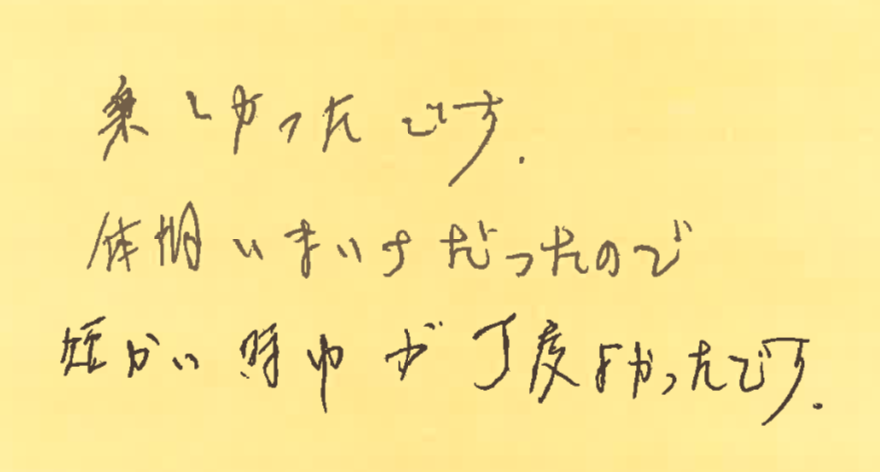 楽しかったです.
体調いまいちだったので
短かい時間が丁度よかったです.